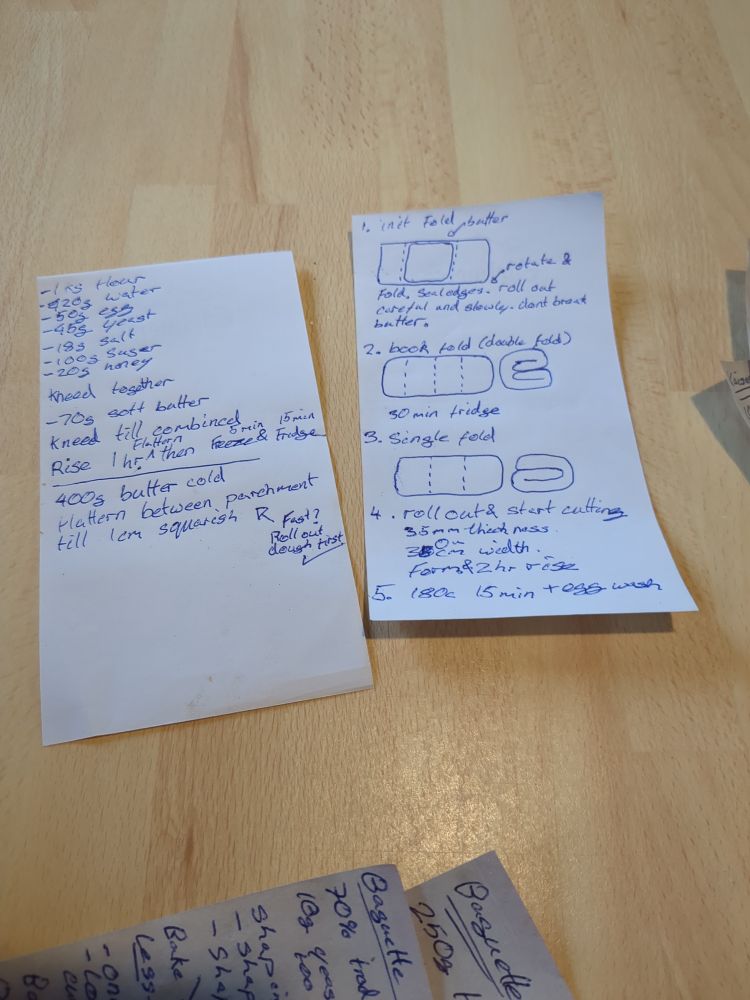 - 1kg flour
- 420g water
- 50g egg
- 45g yeast
- 18g salt
- 100g suger
- 20g honey
Kneed together
- 70g soft butter
Kneed till combined
Flattern 5min 15min
Rise 1hr ^ then Freeze & Fridge
400g butter cold
Flattern between parchment
till 1cm squarish
Fast?
Roll out
dough first
1. init Fold butter
rotate &
Fold. Seal edges. roll out
careful and slowly. dont break
butter.
2. book fold (double fold)
30 min fridge
3. Single fold
4. roll out & start cutting
35mm thickness
30cm width.
Form & 2hr rise
5. 180c 15min + egg wash
Baguette
70% 
10g yeas
100
Shapin
- Shap
- Shap
Bake
Less
- On
- Lo
Baguette
250g